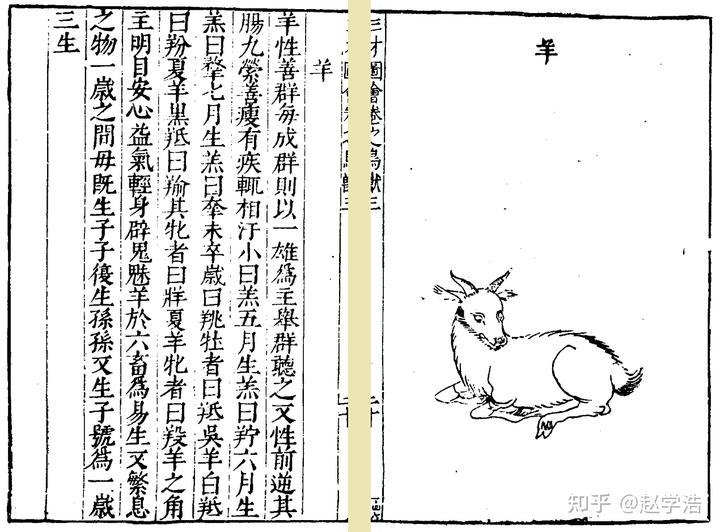 羊
三才圖會卷之鳥獸三
羊
羊性善群每成群則以一雄爲主舉群聽之又性前逆其
腸九縈善瘦有疾輒相汙小曰羔五月生羔曰羜六月生
羔曰七月生羔曰羍未卒歲曰䍮牡者曰羝吳羊白羝
曰羒夏羊黑羝曰羭其牝者曰牂夏羊牝者曰羖羊之角
主明目安心益氣輕身辟鬼魅羊於六畜爲易生又繁息
之物一歲之間毋既生子子復生孫孫又生子號爲一歲
三生
知乎 @赵学浩